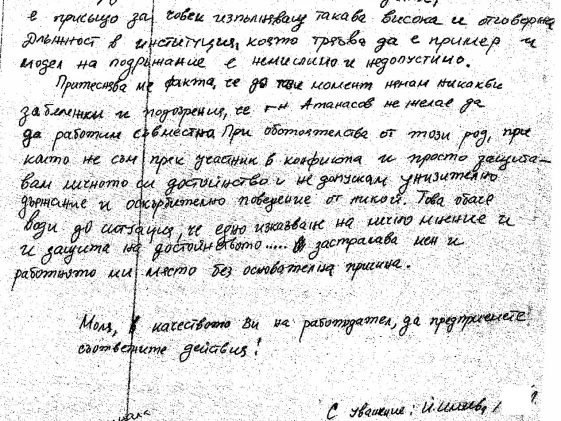 е присъщо за човек изпълняващ такава висока и отговорна
длъжност в институция, която трябва да е пример и
модел на подържание е немислимо и недопустимо.
Притеснява ме факта, че до този момент нямам никакви
забележки и подозрения, че г-н Атанасов не желае да
да работим съвместна При обстоятелства от този род, при
които не съм пряк участник в конфликта и просто защита-
вам личното си достойнство и не допускам унизително
държание и оскърбително поведение от никой. Това обаче
води до ситуация, че едно изказване на лично мнение и
и защита на достойнството..... застралава мен и
работното ми място без основателна причина.
Моля, в качеството Ви на работодател, да предприемете
съответните действия!
С уважение: